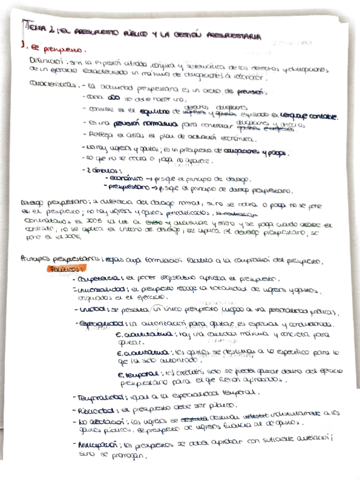 TEMA 2: EL PRESUPUESTO PÚBLICO Y LA GESTIÓN PRESUPUESTARIA
1. El presupuesto.
Definición: son la expresión cifrada, conjunta y sistemática de los derechos y obligaciones,
de un ejercicio estableciendo un máximo de obligaciones a reconocer.
Características: - La actividad presupuestaria es un acto de previsión:
- cada año se debe hacer uno.
- consiste en el equilibrio de expresado en lenguaje contable.
- Es una previsión normativa para
- Refleja el plan de actuación económica.
- No hay ingresos y gastos, es un presupuesto de obligaciones y pagos.
- Lo que no se cobra o paga no aparece.
- 2 cálculos:
- económico → sigue el principio de devengo.
- presupuestario → sigue el principio de devengo presupuestario.
Devengo presupuestario: a diferencia del devengo normal, si no se cobra o paga no se pone
en el presupuesto, no hay ingresos y gastos periodificados.
contratamos en 2005 y se paga cuando el
contrato, no se aplica el criterio de devengo, se aplica el devengo presupuestario, se
pone en el 2006.
Principios presupuestarios: reglas cuya formulación facilita la comprensión del presupuesto.
Políticos:
- Competencia: el poder legislativo aprueba el presupuesto.
- Universalidad: el presupuesto recoge la totalidad de ingresos y gastos,
originados en el ejercicio.
- Unidad: se presenta un único presupuesto ligado a una personalidad política.
- Especialidad: La autorización para gastar es especial y condicionada.
E. cuantitativa: hay una cuantía máxima y concreta para
gastar.
E. cualitativa: los gastos se destinan a lo específico para lo
que ha sido autorizado.
E. temporal: los créditos solo se pueden gastar dentro del ejercicio
presupuestario para el que fueron aprobados.
- Temporalidad: igual a la especialidad temporal.
- Publicidad: el presupuesto debe ser público.
- No afectación: los ingresos se destinan indistintamente a los
gastos públicos. El presupuesto de ingresos financia al de gastos.
- Anticipación: los presupuestos se deben aprobar con suficiente antelación;
si no se prorrogan.